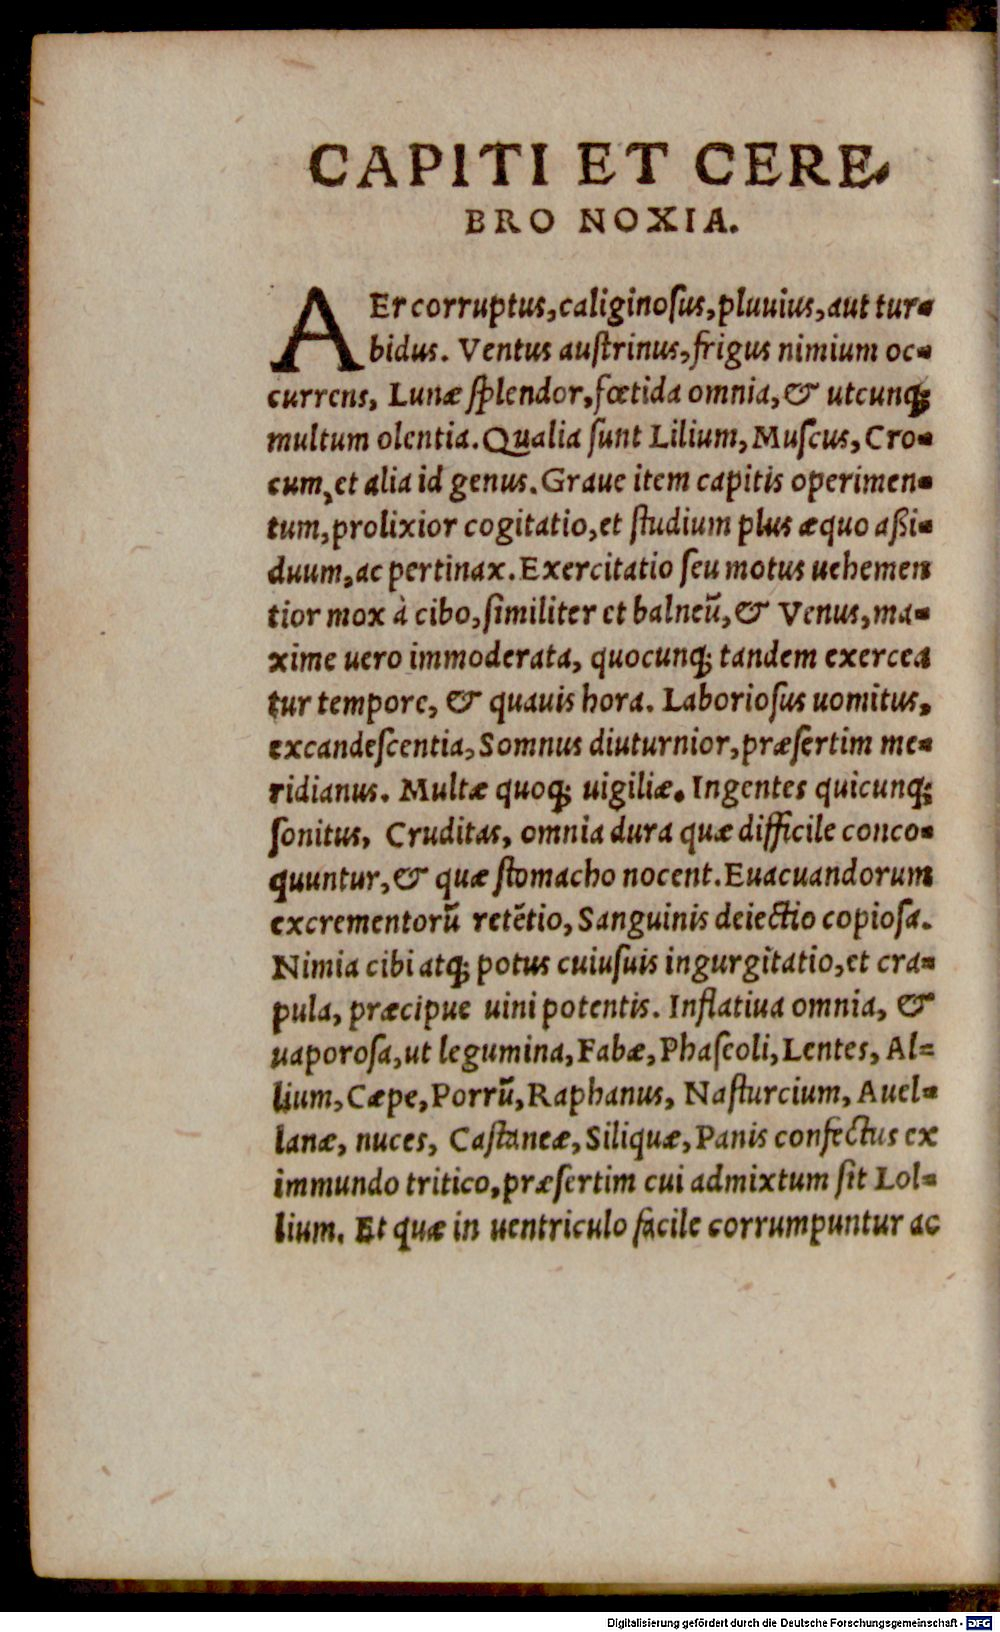 CAPITI ET CERE-
BRO NOXIA.
AEr corruptus, caliginoſus, pluuius, aut tur-
bidus. Ventus auſtrinus, frigus nimium oc-
currens, Lunæ ſplendor, fœtida omnia, & utcunq;
multum olentia. Qualia ſunt Lilium, Muſcus, Cro-
cum, et alia id genus. Graue item capitis operimen-
tum, prolixior cogitatio, et ſtudium plus æquo aßi-
duum, ac pertinax. Exercitatio ſeu motus uehemen
tior mox à cibo, ſimiliter et balneū, & Venus, ma-
xime uero immoderata, quocunq; tandem exercea
tur tempore, & quauis hora. Laborioſus uomitus,
excandeſcentia, Somnus diuturnior, præſertim me-
ridianus. Multæ quoq; uigiliæ. Ingentes quicunq;
ſonitus, Cruditas, omnia dura quæ difficile conco-
quuntur, & quæ ſtomacho nocent. Euacuandorum
excrementorū retētio, Sanguinis deiectio copioſa.
Nimia cibi atq; potus cuiuſuis ingurgitatio, et cra-
pula, præcipue uini potentis. Inflatiua omnia, &
uaporoſa, ut legumina, Fabæ, Phaſeoli, Lentes, Al-
lium, Cæpe, Porrū, Raphanus, Naſturcium, Auel-
lanæ, nuces, Caſtaneæ, Siliquæ, Panis confectus ex
immundo tritico, præſertim cui admixtum ſit Lol-
lium. Et quæ in uentriculo facile corrumpuntur ac
Digitalisierung gefördert durch die Deutsche Forschungsgemeinschaft - DFG